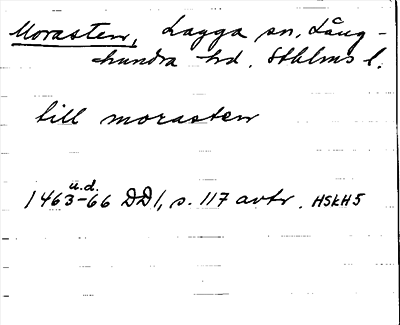 Morasten, Lagga sn, Lång-
hundra hd. Sthlms l.
till morasten
u.d.
1463-66 DD1, s. 117 avtr. HSKH5